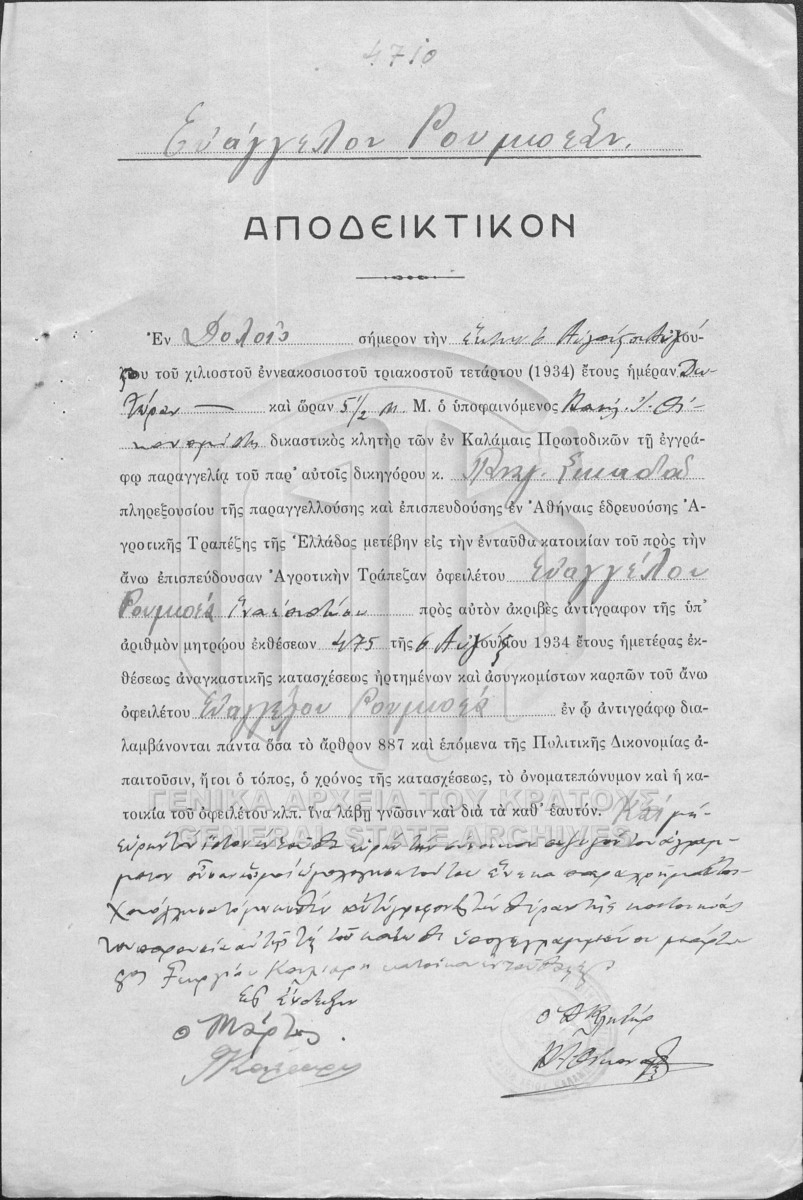 4710
Εὐάγγελον Ρουμπεάν.
ΑΠΟΔΕΙΚΤΙΚΟΝ
Ἐν Δολούς σήμερον τὴν ἕκτην 6 Αὐγούστου Αὐγού-
στου τοῦ χιλιοστοῦ ἐννεακοσιοστοῦ τριακοστοῦ τετάρτου (1934) ἔτους ἡμέραν Δευ-
τέραν — καὶ ὥραν 5 1/2 π. Μ. ὁ ὑποφαινόμενος Οἰ-
κονομίδης δικαστικὸς κλητὴρ τῶν ἐν Καλάμαις Πρωτοδικῶν τῇ ἐγγρά-
φῳ παραγγελίᾳ τοῦ παρ' αὐτοῖς δικηγόρου κ.
πληρεξουσίου τῆς παραγγελλούσης καὶ ἐπισπευδούσης ἐν Ἀθήναις ἑδρευούσης Ἀ-
γροτικῆς Τραπέζης τῆς Ἑλλάδος μετέβην εἰς τὴν ἐνταῦθα κατοικίαν τοῦ πρὸς τὴν
ἄνω ἐπισπεύδουσαν Ἀγροτικὴν Τράπεζαν ὀφειλέτου Εὐαγγέλου
Ρουμπεά ἵνα ἐπιδώσω πρὸς αὐτὸν ἀκριβὲς ἀντίγραφον τῆς ὑπ'
ἀριθμὸν μητρῴου ἐκθέσεων 475 τῆς 6 Αὐγούστου 1934 ἔτους ἡμετέρας ἐκ-
θέσεως ἀναγκαστικῆς κατασχέσεως ἠρτημένων καὶ ἀσυγκομίστων καρπῶν τοῦ ἄνω
ὀφειλέτου Εὐαγγέλου Ρουμπεά ἐν ᾧ ἀντιγράφῳ δια-
λαμβάνονται πάντα ὅσα τὸ ἄρθρον 887 καὶ ἑπόμενα τῆς Πολιτικῆς Δικονομίας ἀ-
παιτοῦσιν, ἤτοι ὁ τόπος, ὁ χρόνος τῆς κατασχέσεως, τὸ ὀνοματεπώνυμον καὶ ἡ κα-
τοικία τοῦ ὀφειλέτου κλπ. ἵνα λάβῃ γνῶσιν καὶ διὰ τὰ καθ' ἑαυτόν. Καὶ μὴ
εὑρὼν τὴν σύνοικον σύζυγόν του ἀγράμ-
ματον
τῆς κατοικίας
του παρουσίᾳ τοῦ κάτωθι ὑπογεγραμμένου μάρτυ-
ρος Γεωργίου
Εἰς ἔνδειξιν
ὁ Μάρτυς
ὁ Δ Κλητήρ
ΓΕΝΙΚΑ ΑΡΧΕΙΑ ΤΟΥ ΚΡΑΤΟΥΣ
GENERAL STATE ARCHIVES